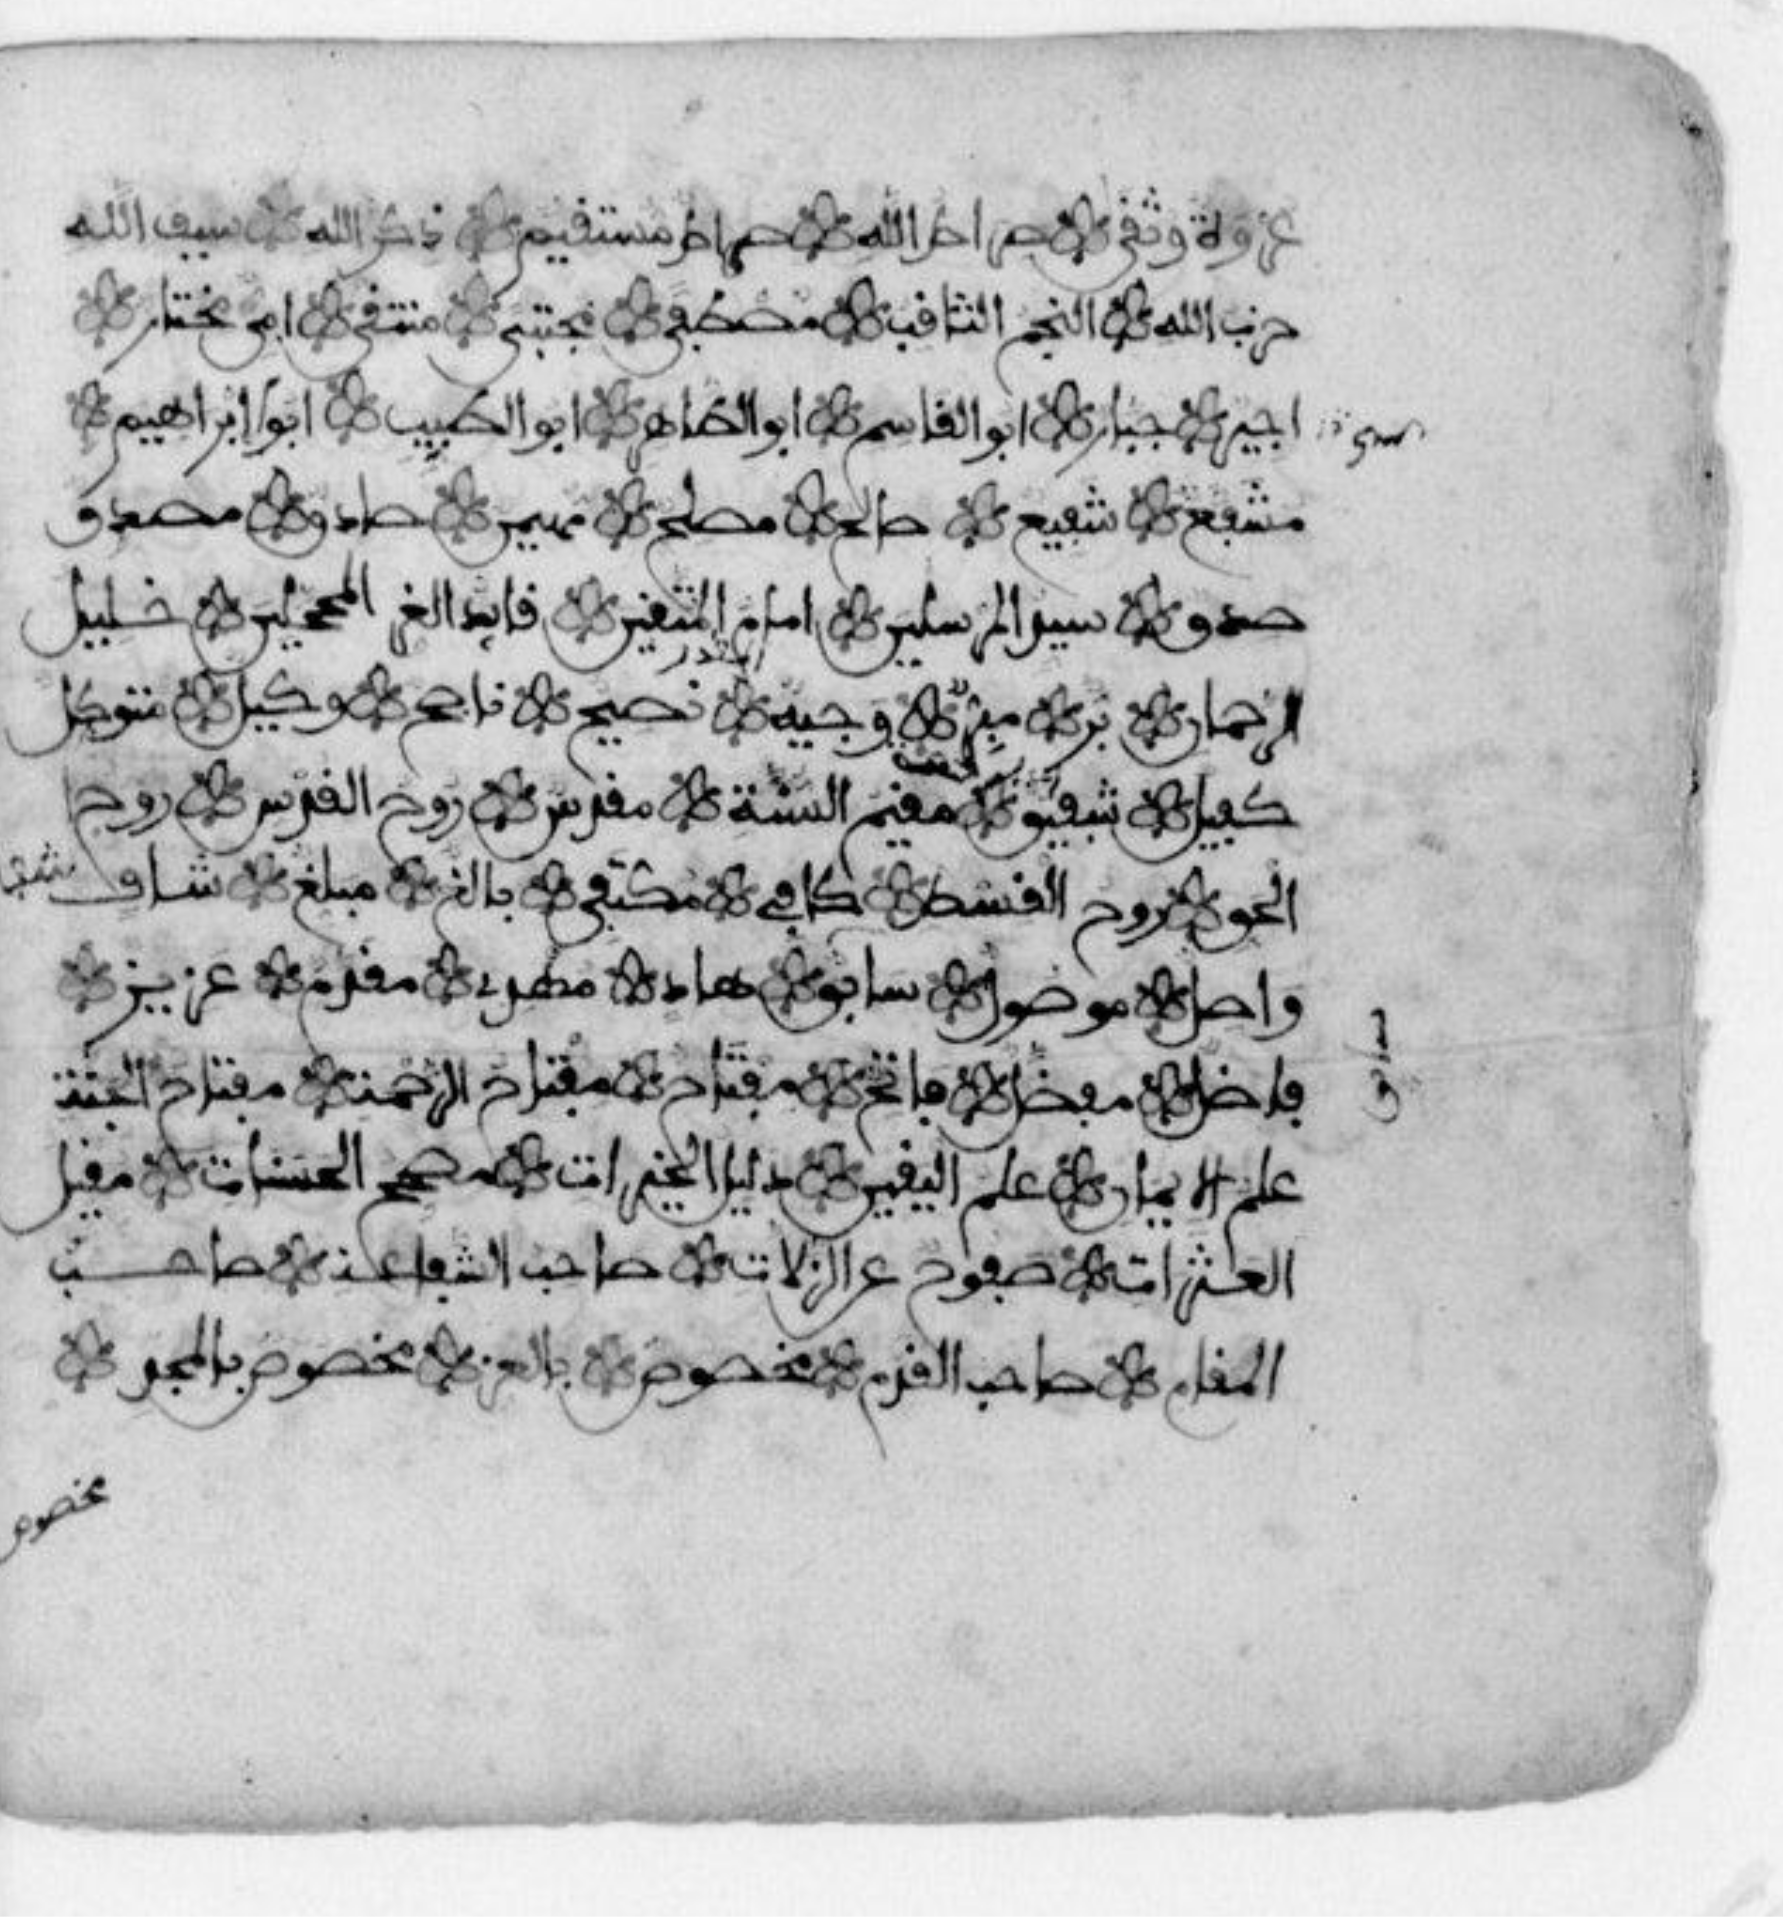 عروة وثقى صراط الله صراط مستقيم ذكر الله سيف الله
حزب الله النجم الثاقب مصطفى مجتبى منتقى امي مختار
اجير جبار ابو القاسم ابو الطاهر ابو الطيب ابو ابراهيم
مشفع شفيع صالح مصلح مهيمن صادق مصدق
صدق سيد المرسلين امام المتقين قايد الغر المحجلين خليل
الرحمان بر مبر وجيه نصيح ناصح وكيل متوكل
كفيل شفيق مقيم السنة مقدس روح القدس روح
الحق روح القسط كافي مكتفي بالغ مبلغ شاف
واصل موصول سابق هاد مهد مقدم عزيز
فاضل مفضل فاتح مفتاح مفتاح الرحمة مفتاح الجنة
علم الايمان علم اليقين دليل الخيرات مصحح الحسنات مقيل
العثرات صفوح عن الزلات صاحب الشفاعة صاحب
المقام صاحب القدم مخصوص بالعز مخصوص بالمجد
مخصوص